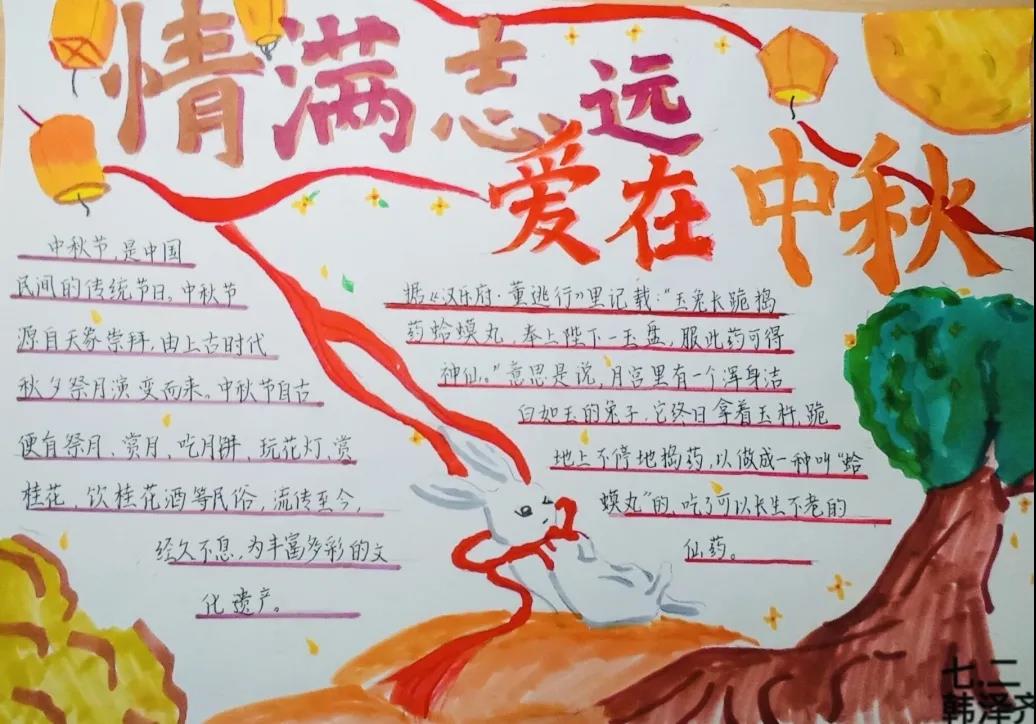 情满志远
爱在中秋
中秋节,是中国
民间的传统节日。中秋节
源自天象崇拜,由上古时代
秋夕祭月演变而来。中秋节自古
便有祭月、赏月、吃月饼、玩花灯、赏
桂花、饮桂花酒等民俗,流传至今,
经久不息,为丰富多彩的文
化遗产。
据《汉乐府·董逃行》里记载:“玉兔长跪捣
药蛤蟆丸,奉上陛下一玉盘,服此药可得
神仙。”意思是说,月宫里有一个浑身洁
白如玉的兔子,它终日拿着玉杵,跪
地上不停地捣药,以做成一种叫“蛤
蟆丸”的,吃了可以长生不老的
仙药。
七.二
韩泽